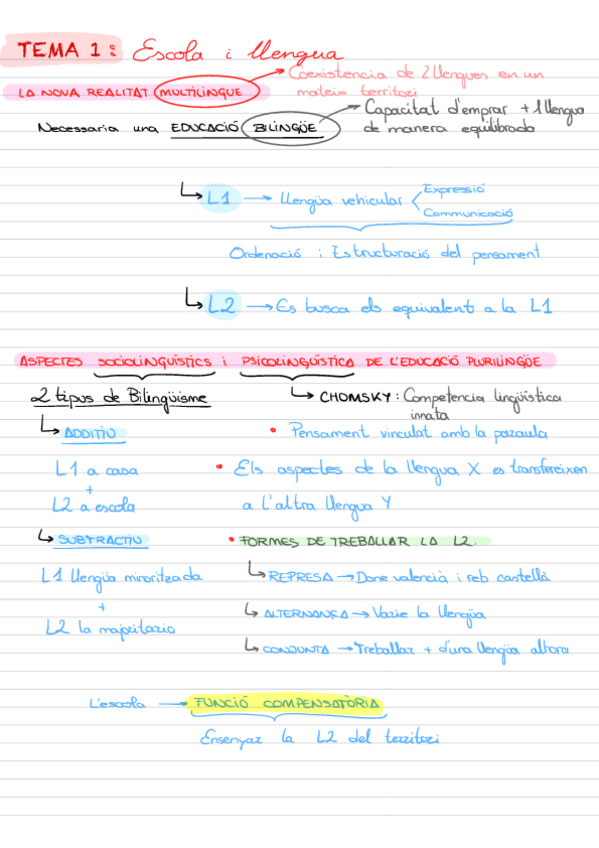 TEMA 1: Escola i llengua
Coexistencia de 2 llengues en un
mateix territori
LA NOVA REALITAT MULTILINGUE
Capacitat d'emprar + 1 llengua
de manera equilibrada
Necessaria una EDUCACIÓ BILINGÜE
L1 → Llengüa vehicular
Expressió
Communicació
Ordenació i Estructuració del pensament
L2 → Es busca els equivalent a la L1
ASPECTES SOCIOLINGUÍSTICS i PSICOLINGUÍSTICA DE L'EDUCACIÓ PLURILINGÜE
2 tipus de Bilingüisme
CHOMSKY: Competencia lingüística
innata
ADDITIU
• Pensament vinculat amb la paraula
L1 a casa
+
L2 a escola
• Els aspectes de la llengua X es transfereixen
a l'altra llengua Y
SUBTRACTIU
• FORMES DE TREBALLAR LA L2.
L1 llengüa minoritzada
+
L2 la majoritaria
REPRESA → Done valencià i reb castellà
ALTERNANÇA → Varie la llengüa
CONJUNTA → Treballar + d'una llengüa alhora
L'escola → FUNCIÓ COMPENSATÒRIA
Ensenyar la L2 del territori